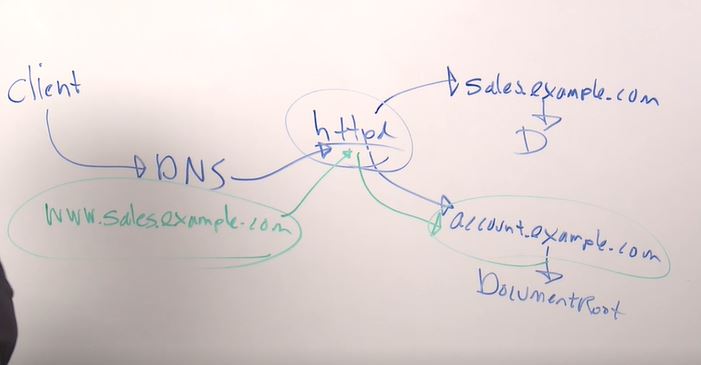 Client
DNS
www.sales.example.com
httpd
sales.example.com
D
account.example.com
DocumentRoot